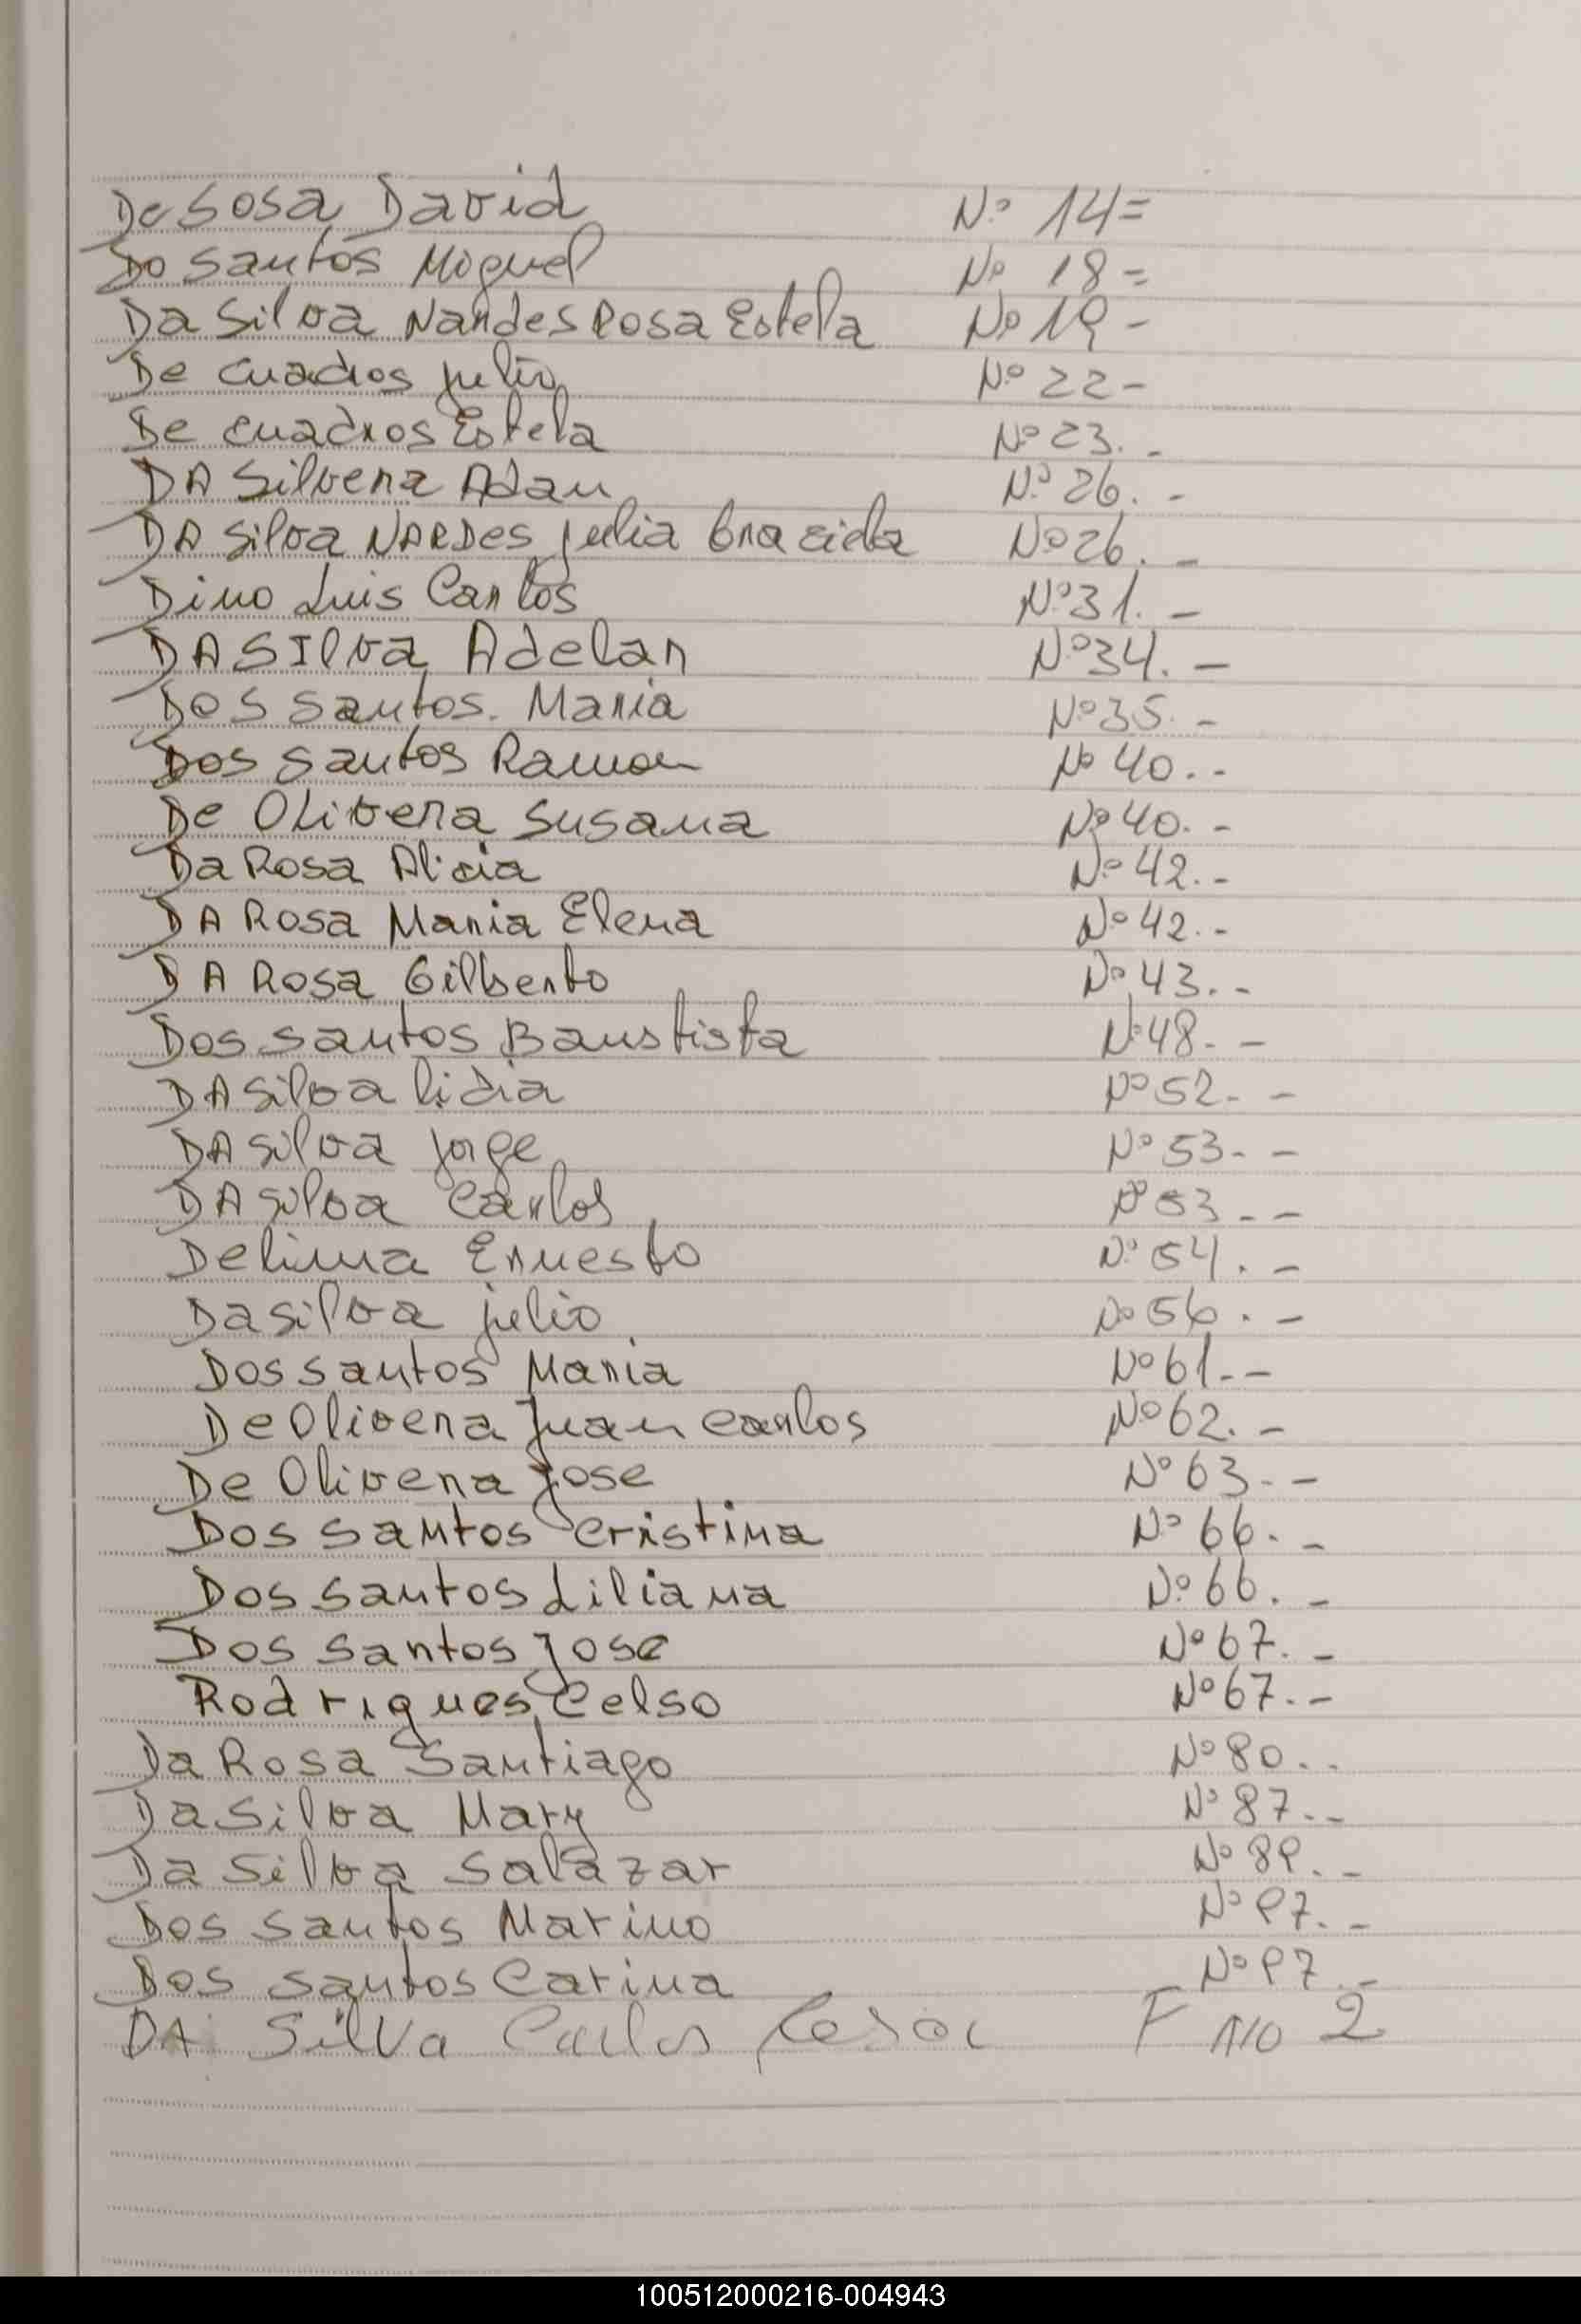 De Sosa David N.º 14=
Do Santos Miguel Nº 18=
Da Silva Nardes Rosa Estela Nº 19-
De cuadros julio Nº 22-
De cuadros Estela Nº 23.-
DA Silvera Adan N.º 26.-
DA Silva NARDes julia Gracida Nº 26.-
Dino Luis Carlos Nº 31.-
DA SIlva Adelar Nº 34.-
Dos santos. Maria Nº 35.-
Dos santos Ramon Nº 40.-
De OLivera Susana Nº 40.-
Da Rosa Alicia Nº 42.-
DA Rosa Maria Elena Nº 42.-
DA Rosa Gilberto Nº 43.-
Dos santos Baustista Nº 48.-
DA silva lidia Nº 52.-
DA silva jorge Nº 53.-
DA silva Carlos Nº 53.-
De lima Ernesto Nº 54.-
Da silva julio Nº 56.-
Dos santos Maria Nº 61.-
De Olivera Juan carlos Nº 62.-
De Olivera Jose Nº 63.-
Dos santos cristina Nº 66.-
Dos santos Liliana Nº 66.-
Dos santos Jose Nº 67.-
Rodrigues Celso Nº 67.-
Da Rosa Santiago Nº 80..
Da Silva Mary Nº 87.-
Da Silva Salazar Nº 89.-
Dos santos Marino Nº 97.-
Dos santos Carina Nº 97.-
DA Silva Carlos Cesar F No 2
100512000216-004943